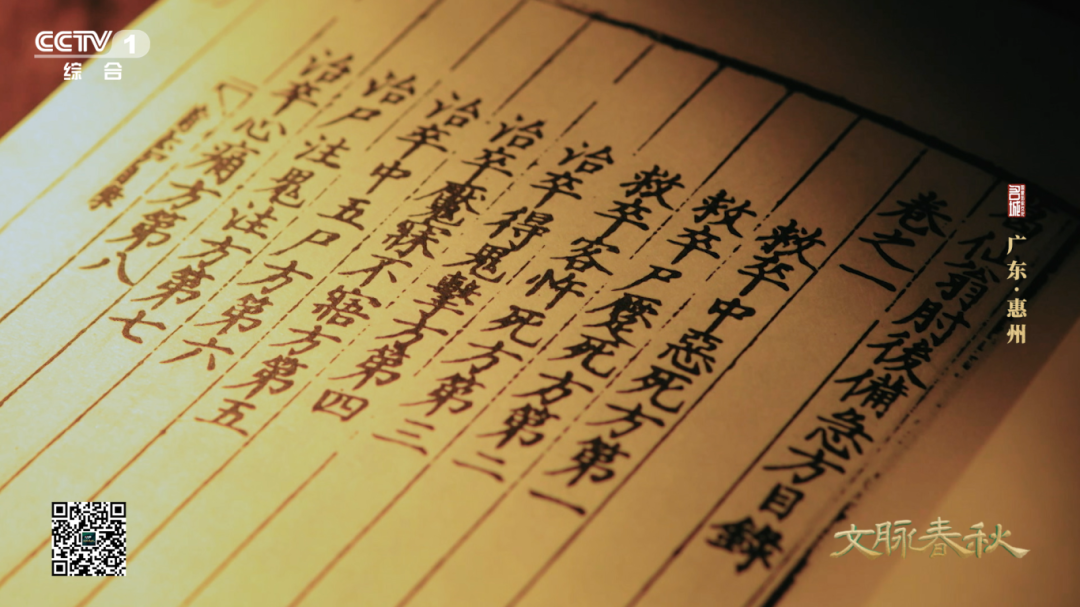 CCTV 1
综合
葛仙翁肘後備急方目錄
卷之一
救卒中惡死方第一
救卒尸蹷死方第二
救卒客忤死方第三
治卒得鬼擊方第四
治卒魘寐不寤方第五
治卒中五尸方第六
治尸注鬼注方第七
治卒心痛方第八
名城
广东·惠州
文脉春秋